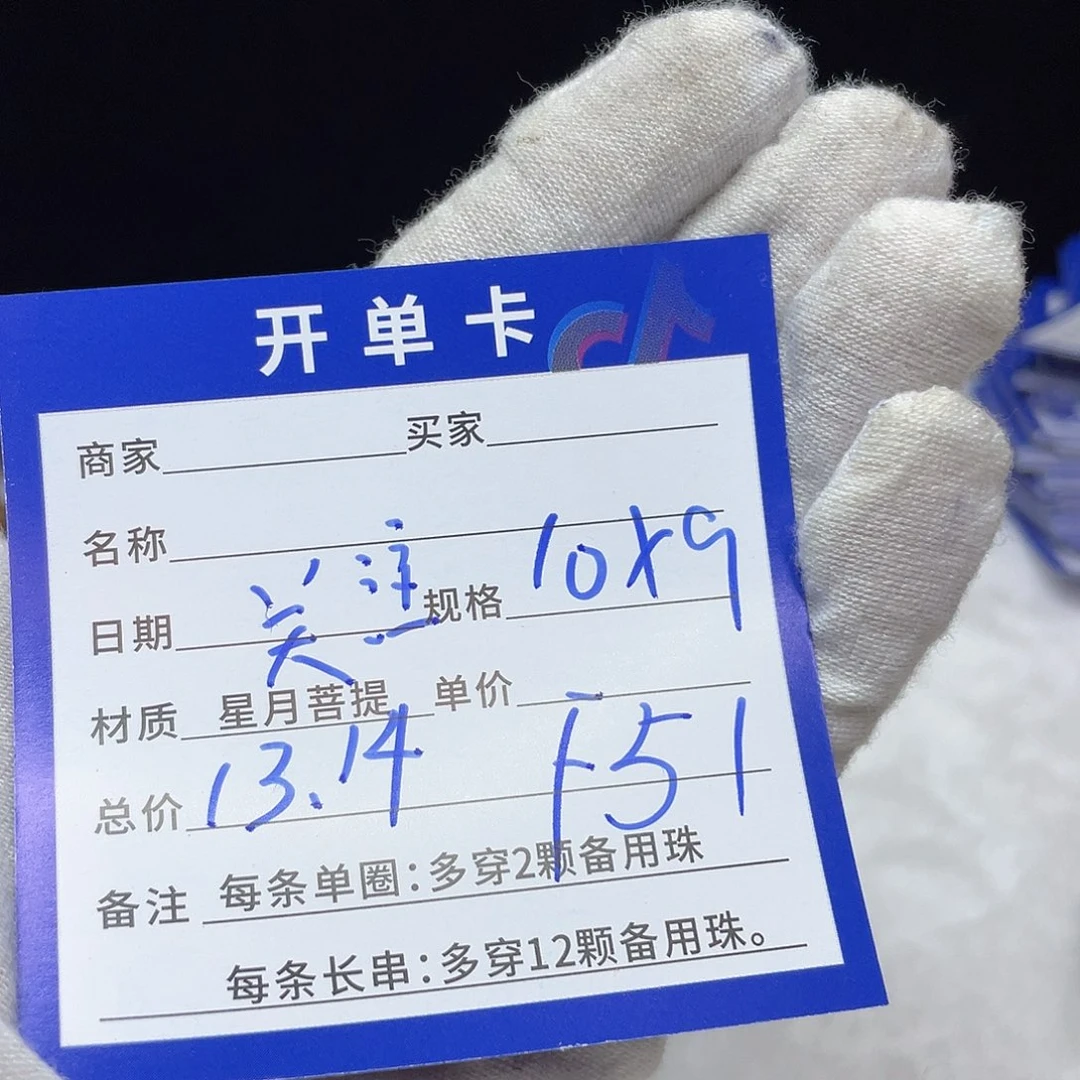 开单卡
商家 买家
名称
日期 关注 规格 10x9
材质 星月菩提 单价
总价 13.14 F51
备注 每条单圈:多穿2颗备用珠
每条长串:多穿12颗备用珠。